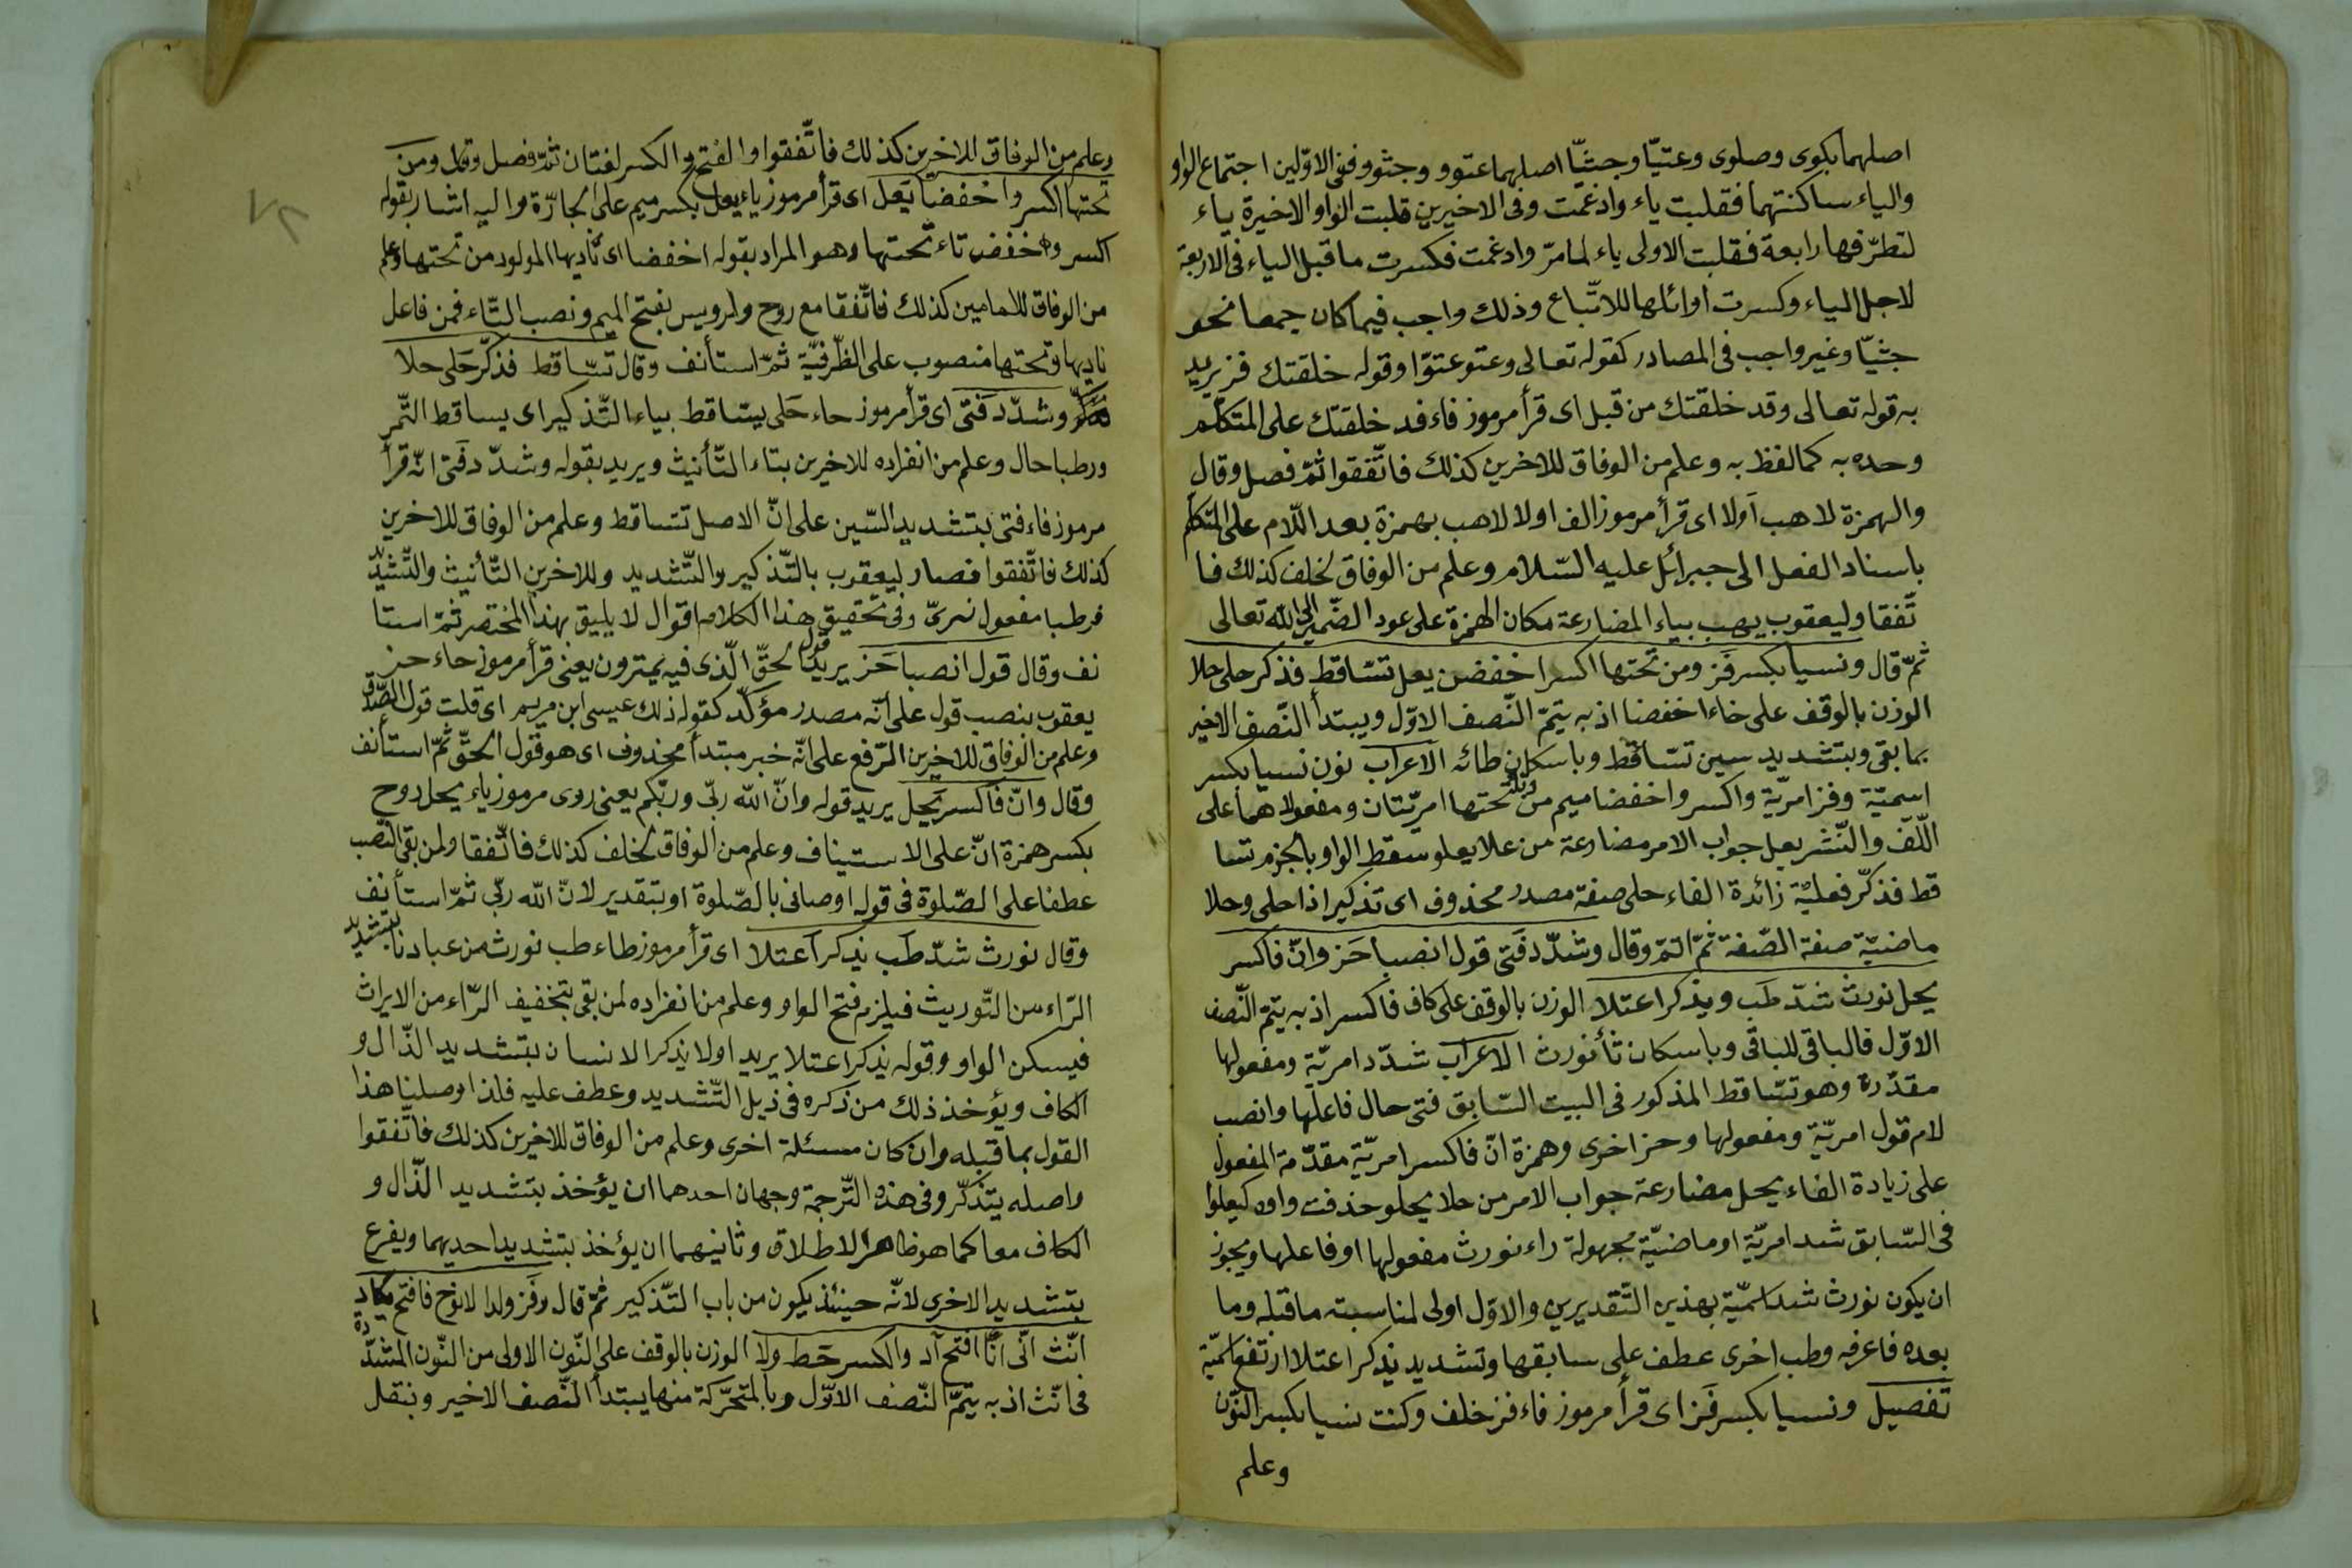 اصلهما بكوى وصلوى وعتيّا وجثيّا اصلهما عتوو وجثوو ففى الاوّلين اجتماع الواو
والياء ساكنتهما فقلبت ياء وادغمت وفى الاخيرين قلبت الواو الاخيرة ياء
لتطرّفها رابعة فقلبت الاولى ياء لما مرّ وادغمت فكسرت ما قبل الياء فى الاربعة
لاجل الياء وكسرت اوائلها للاتّباع وذلك واجب فيما كان جمعا نحو
جثيّا وغير واجب فى المصادر كقوله تعالى وعتو عتوّا وقوله خلقتك فز يريد
به قوله تعالى وقد خلقتك من قبل اى قرأ مرموز فاء فد خلقتك على المتكلّم
وحده به كما لفظ به وعلم من الوفاق للاخرين كذلك فاتّفقوا ثمّ فصل وقال
والهمزة لاهب اَولا اى قرأ مرموز الف اولا لاهب بهمزة بعد اللّام على المتكلم
باسناد الفعل الى جبرائل عليه السّلام وعلم من الوفاق لخلف كذلك فا
تّفقا وليعقوب يهب بياء المضارعة مكان الهمزة على عود الضّمير الى الله تعالى
ثمّ قال ونسيا بكسر فَز ومن تحتها اكسرا خفضن يعل تسّاقط فذكر حلى حلا
الوزن بالوقف على خاء اخفضا اذ به يتمّ النّصف الاوّل ويبتدأ النّصف الاخير
بما بقى وبتشديد سين تسّاقط وباسكان طائه الاعراب نون نسيا بكسر
اسميّة وفز امريّة واكسر واخفضا ميم من وتاء تحتها امريّتان ومفعولاهما على
اللّفّ والنّشر يعل جواب الامر مضارعة من علا يعلو سقط الواو بالجزم تسا
قط فذكّر فعليّة زائدة الفاء حلى صفة مصدر محذوف اى تذكيرا ذا حلى وحلا
ماضيّة صفة الصّفة ثمّ اتمّ وقال وشدّد فَتى قول انصبا حَز وانّ فاكسر
يحل نورث شدّ طَب ويذكر اعتلا الوزن بالوقف على كاف فاكسر اذ به يتمّ النّصف
الاوّل فالباقى للباقى وباسكان ثأ نورث الاعراب شدّد امريّة ومفعولها
مقدّرة وهو تسّاقط المذكور فى البيت السّابق فتى حال فاعلها وانصب
لام قول امريّة ومفعولها وحز اخرى وهمزة انّ فاكسر امريّة مقدّمة المفعول
على زيادة الفاء يحل مضارعة جواب الامر من حلا يحلو حذفت واوه كيعلوا
فى السّابق شد امريّة او ماضيّة مجهولة راء نورث مفعولها او فاعلها ويجوز
ان يكون نورث شد اسميّة بهذين التّقديرين والاوّل اولى لمناسبته ما قبله وما
بعده فاعرفه وطب اخرى عطف على سابقها وتشديد يذكر اعتلا ارتفع اسميّة
تفصيل ونسيا بكسر فَز اى قرأ مرموز فاء فز خلف وكنت نسيا بكسر النّون
وعلم
وعلم من الوفاق للاخرين كذلك فاتّفقوا والفتح والكسر لغتان ثمّ فصل وقال ومن
تحتها اكسر واخفضا يَعل اى قرأ مرموز ياء يعل بكسر ميم على الجارّة واليه اشار بقوله
اكسر واخفض تاء تحتها وهو المراد بقوله اخفضا اى ناديها المولود من تحتها وعلم
من الوفاق للامامين كذلك فاتّفقا مع روح ولرويس بفتح الميم ونصب التّاء فمن فاعل
ناديها وتحتها منصوب على الظّرفيّة ثمّ استأنف وقال تسّاقط فذكّر حَلى حلا
وشدّد فَتى اى قرأ مرموز حاء حَلى يسّاقط بياء التّذكير اى يساقط الثّمر
ورطبا حال وعلم من انفراده للاخرين بتاء التّأنيث ويريد بقوله وشدّد فَتى انّه قرأ
مرموز فاء فتى بتشديد السّين على انّ الاصل تتساقط وعلم من الوفاق للاخرين
كذلك فاتّفقوا فصار ليعقوب بالتّذكير والتّشديد وللاخرين التّأنيث والتّشديد
فرطبا مفعول نهزىّ وفى تحقيق هذا الكلام اقوال لا يليق بهذا المختصر ثمّ استا
نف وقال قول انصبا حَز يريد قول الحقّ الّذى فيه يمترون يعنى قرأ مرموز حاء حز
يعقوب بنصب قول على انّه مصدر مؤكّد كقوله ذلك عيسى ابن مريم اى قلت قول الصّدق
وعلم من الوفاق للاخرين الرّفع على انّه خبر مبتدأ محذوف اى هو قول الحقّ ثمّ استأنف
وقال وانّ فاكسر يَحل يريد قوله وانّ الله ربّى وربّكم يعنى روى مرموز ياء يحل روح
بكسر همزة انّ على الاستيناف وعلم من الوفاق لخلف كذلك فاتّفقا ولمن بقى النّصب
عطفا على الصّلوة فى قوله اوصانى بالصّلوة او بتقدير لانّ الله ربّى ثمّ استأنف
وقال نورث شدّ طَب يذكر اعتلا اى قرأ مرموز طاء طب نورث من عبادنا بتشديد
الرّاء من التّوريث فيلزم فتح الواو وعلم من انفراده لمن بقى بتخفيف الرّاء من الايراث
فيسكن الواو وقوله يذكر اعتلا يريد اولا يذكر الانسان بتشديد الذّال و
الكاف ويؤخذ ذلك من ذكره فى ذيل التّشديد وعطف عليه فلذا وصلنا هذا
القول بما قبله وان كان مسئلة اخرى وعلم من الوفاق للاخرين كذلك فاتّفقوا
واصله يتذكّر وفى هذه التّرجمة وجهان احدهما ان يؤخذ بتشديد الذّال و
الكاف معا كما هو ظاهر الاطلاق وثانيهما ان يؤخذ بتشديد احديهما ويفرع
بتشديد الاخرى لانّه حينئذ يكون من باب التّذكير ثمّ قال وفَز ولدا لا نوح فافتح يكاد
انّث انّى انا افتح آد والكسر حَط ولا الوزن بالوقف على النّون الاولى من النّون المشدّدة
فى انّث اذ به يتمّ النّصف الاوّل وبالمتحرّكة منها يبتدأ النّصف الاخير وبنقل